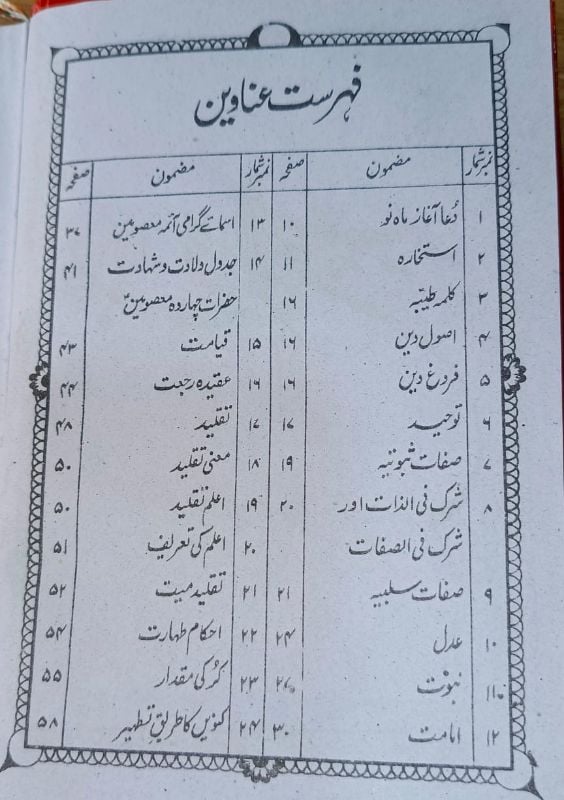 فہرست عناوین
نمبر شمار مضمون صفحہ نمبر شمار مضمون صفحہ
۱ دُعا آغاز ماہ نو ۱۰ ۱۳ اسمائے گرامی آئمہ معصومین ۳۷
۲ استخارہ ۱۱ ۱۴ جدول ولادت و شہادت ۴۱
۳ کلمہ طیبّہ ۱۶ حضرات چہاردہ معصومینؑ
۴ اصول دین ۱۶ ۱۵ قیامت ۴۳
۵ فروغ دین ۱۶ ۱۶ عقیدہ رجعت ۴۴
۶ توحید ۱۷ ۱۷ تقلید ۴۸
۷ صفات ثبوتیہ ۱۹ ۱۸ معنی تقلید ۵۰
۸ شرک فی الذات اور ۲۰ ۱۹ اعلم تقلید ۵۰
شرک فی الصفات ۲۰ اعلم کی تعریف ۵۱
۹ صفات سلبیہ ۲۱ ۲۱ تقلید میت ۵۲
۱۰ عدل ۲۴ ۲۲ احکام طہارت ۵۴
۱۱ نبوت ۲۷ ۲۳ کُر کی مقدار ۵۵
۱۲ امامت ۳۰ ۲۴ کنویں کا طریقِ تطہیر ۵۸